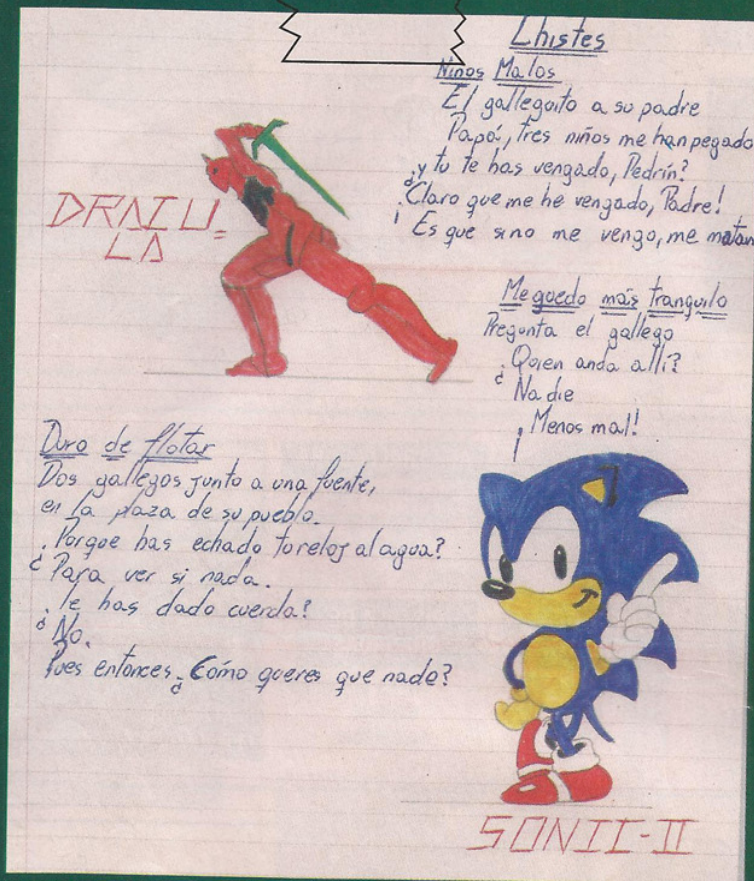 Chistes
Niños Malos
El galleguito a su padre
Papá, tres niños me han pegado
¿y tu te has vengado, Pedrín?
¡Claro que me he vengado, Padre!
Es que sino me vengo, me matan
DRACU=
LA
Me quedo más tranquilo
Pregunta el gallego
¿Quien anda allí?
Nadie
¡Menos mal!
Duro de flotar
Dos gallegos junto a una fuente,
en la plaza de su pueblo.
¿Porque has echado tu reloj al agua?
Para ver si nada.
¿le has dado cuerda?
No.
Pues entonces ¿Cómo queres que nade?
SONIC-II